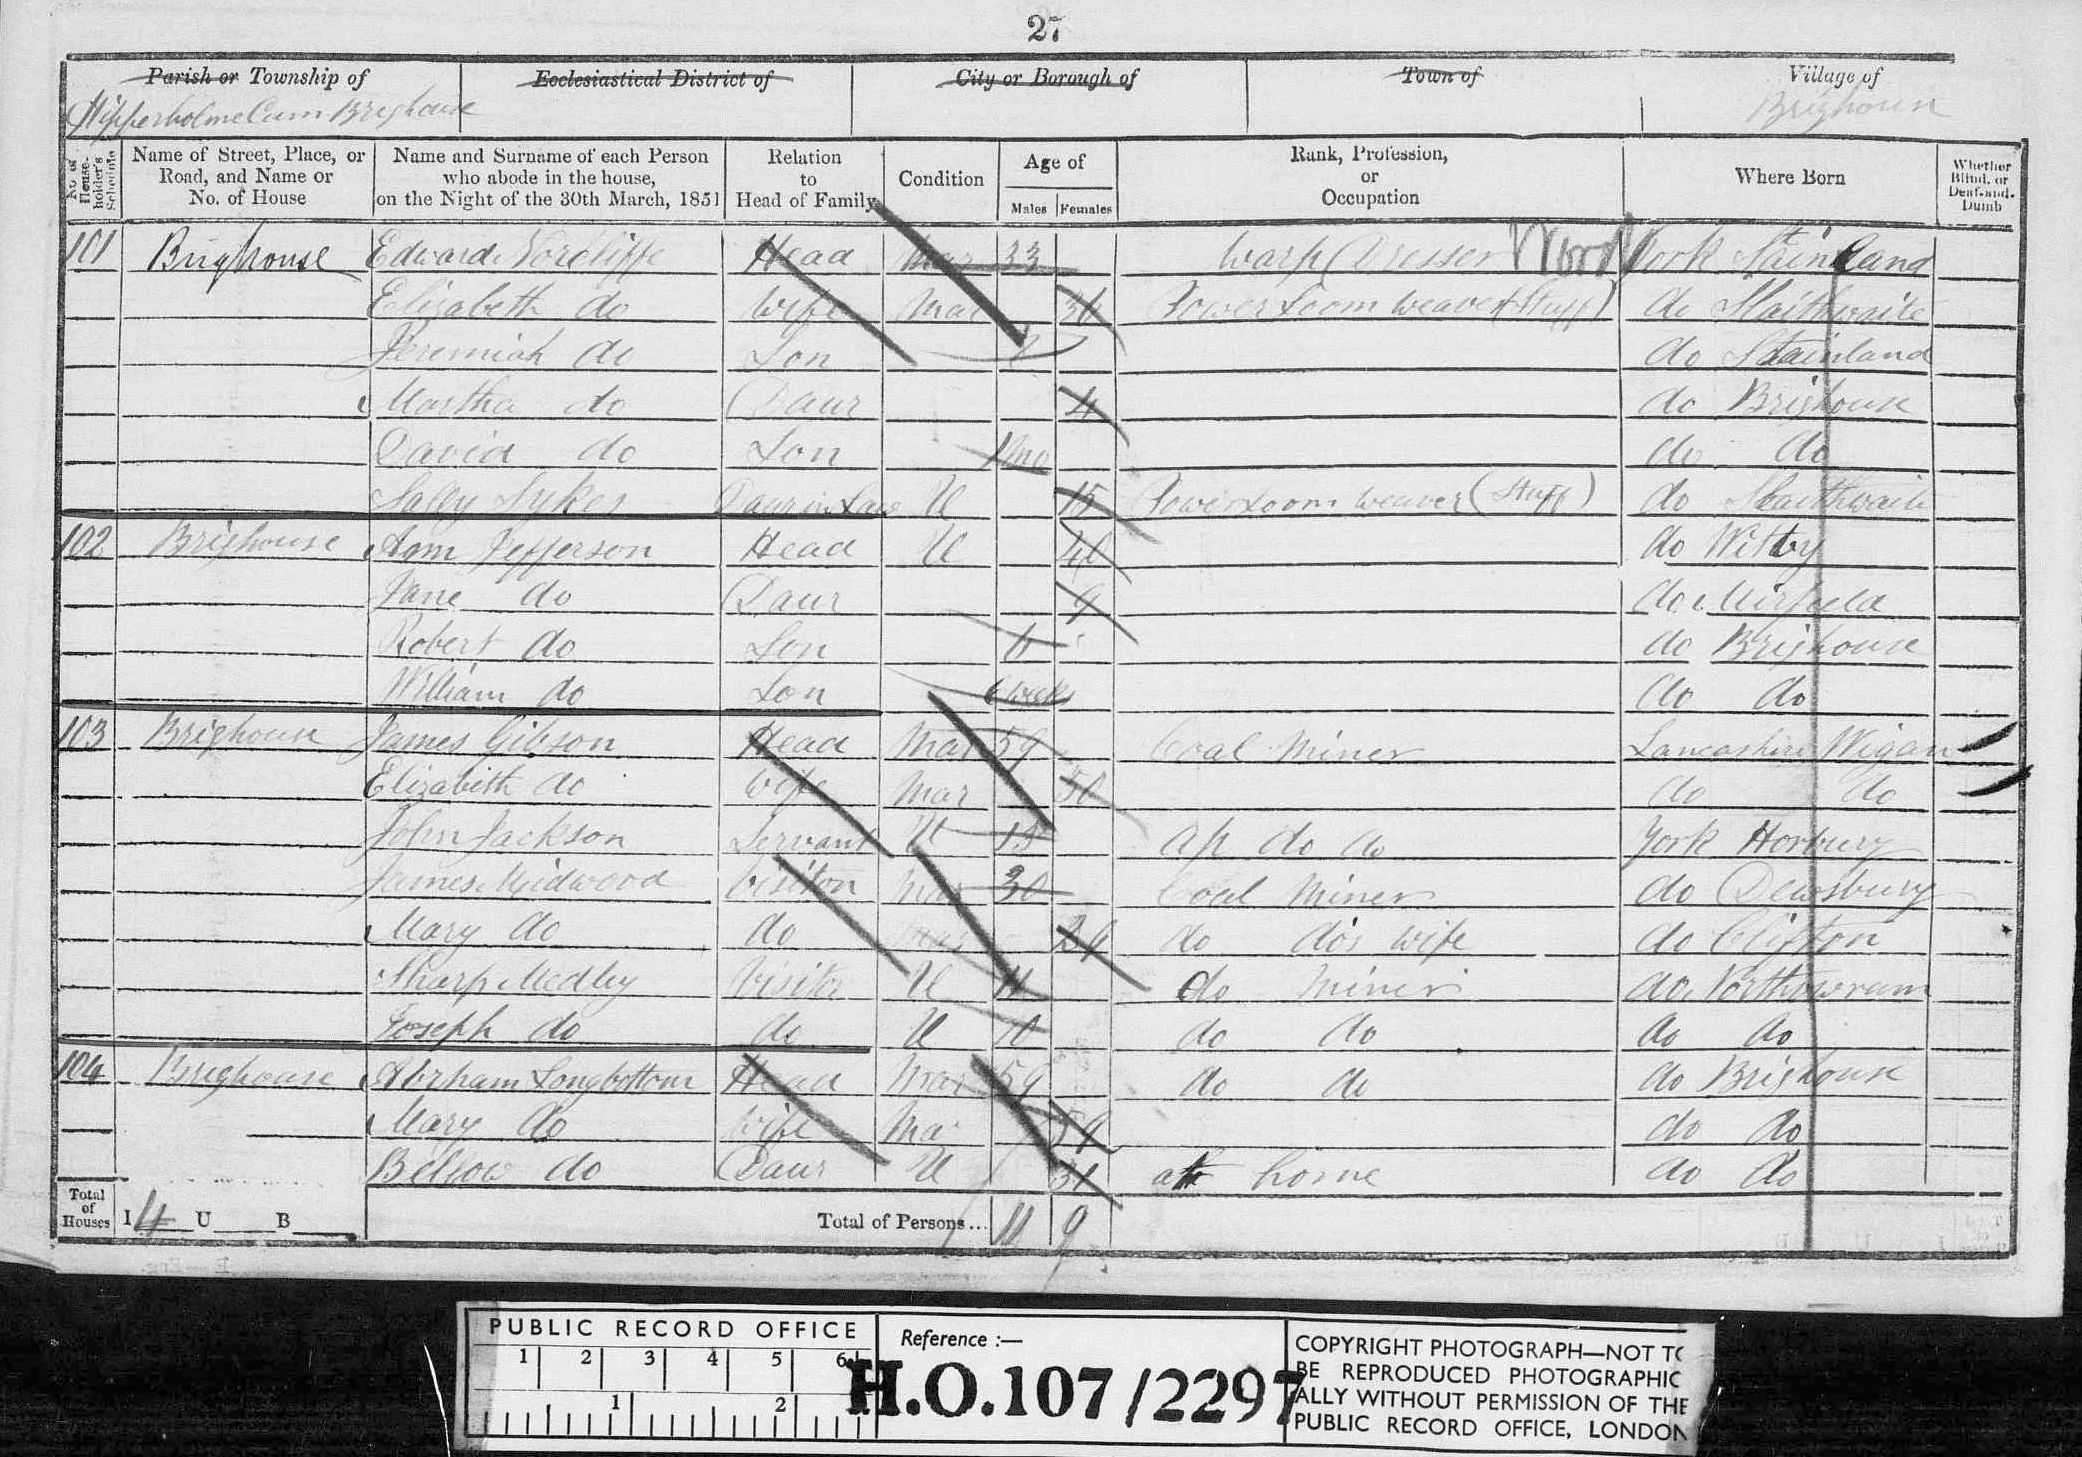 27
Parish or Township of Ecclesiastical District of City or Borough of Town of Village of
Hipperholme Cum Brighouse Brighouse
No. of House-holder's Schedule Name of Street, Place, or Road, and Name or No. of House Name and Surname of each Person who abode in the house, on the Night of the 30th March, 1851 Relation to Head of Family Condition Age of Males Females Rank, Profession, or Occupation Where Born Whether Blind, or Deaf-and-Dumb
101 Brighouse Edward Norcliffe Head Mar 33 Warp Dresser York Stainland
Elizabeth do Wife Mar Power Loom Weaver (Stuff) do Slaithwaite
Jeremiah do Son do Stainland
Martha do Daur 4 do Brighouse
David do Son 1 mo do do
Sally Sykes Daur in Law U 15 Power Loom Weaver (Stuff) do Slaithwaite
102 Brighouse Ann Jefferson Head U 40 do Witby
Jane do Daur 9 do Mirfield
Robert do Son 6 do Brighouse
William do Son 6 weeks do do
103 Brighouse James Gibson Head Mar 59 Coal Miner Lancashire Wigan
Elizabeth do Wife Mar 50 do do
John Jackson Servant U ap do do York Horbury
James Midwood Visitor Mar 30 Coal Miner do Dewsbury
Mary do do Mar 29 do do's wife do Clifton
Sharp Medley Visitor U 11 do Miner do Northowram
Joseph do do U 10 do do do do
104 Brighouse Abrham Longbottom Head Mar 59 do do do Brighouse
Mary do Wife Mar 59 do do
do Daur U 31 at home do do
Total of Houses I 4 U B Total of Persons... 11 9
PUBLIC RECORD OFFICE
1 2 3 4 5 6
1 2
Reference :—
H.O.107/2297
COPYRIGHT PHOTOGRAPH—NOT TO
BE REPRODUCED PHOTOGRAPHIC
ALLY WITHOUT PERMISSION OF THE
PUBLIC RECORD OFFICE, LONDON